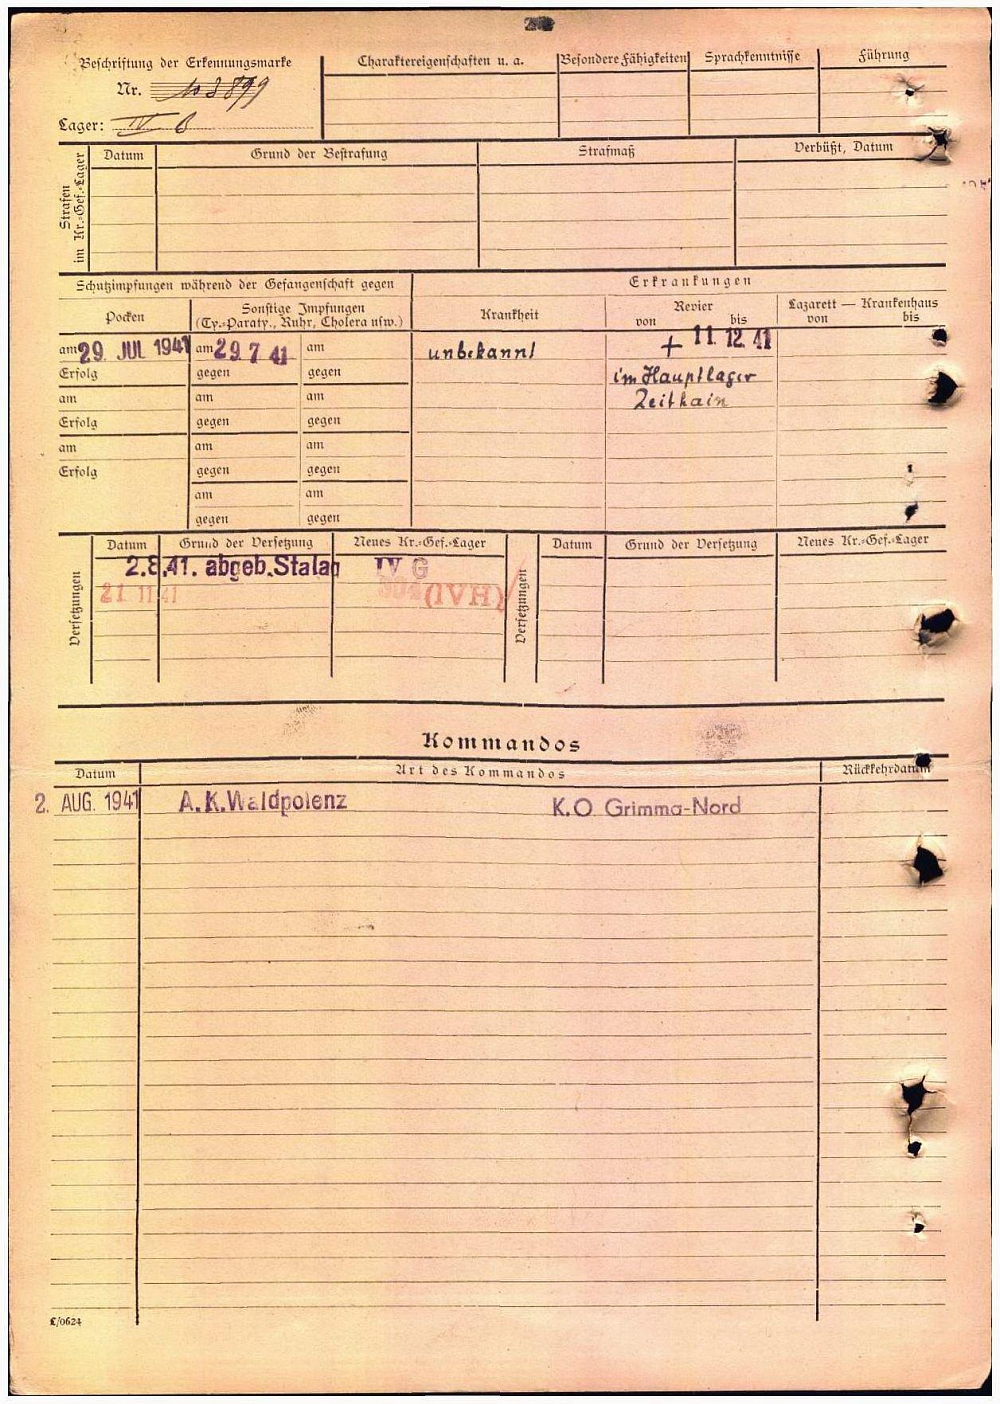 Beschriftung der Erkennungsmarke
Nr. 103899
Lager: IV B
Charaktereigenschaften u. a.
Besondere Fähigkeiten
Sprachkenntnisse
Führung
Strafen im Kr.-Gef.-Lager
Datum
Grund der Bestrafung
Strafmaß
Verbüßt, Datum
Schutzimpfungen während der Gefangenschaft gegen
Erkrankungen
Pocken
Sonstige Impfungen
(Ty.-Paraty., Ruhr, Cholera usw.)
Krankheit
Revier
von bis
Lazarett — Krankenhaus
von bis
am 29. JUL 1941 am 29.7.41 am
unbekannt
+ 11. 12. 41
Erfolg gegen gegen
im Hauptlager
am am am
Zeithain
Erfolg gegen gegen
am am am
Erfolg gegen gegen
am am
gegen gegen
Versetzungen
Datum Grund der Versetzung Neues Kr.-Gef.-Lager
2.8.41. abgeb. Stalag IV G
21 11 41 304 (IVH)
Versetzungen
Datum Grund der Versetzung Neues Kr.-Gef.-Lager
Kommandos
Datum Art des Kommandos Rückkehrdatum
2. AUG. 1941 A.K. Waldpolenz K.O Grimma-Nord
£/0624